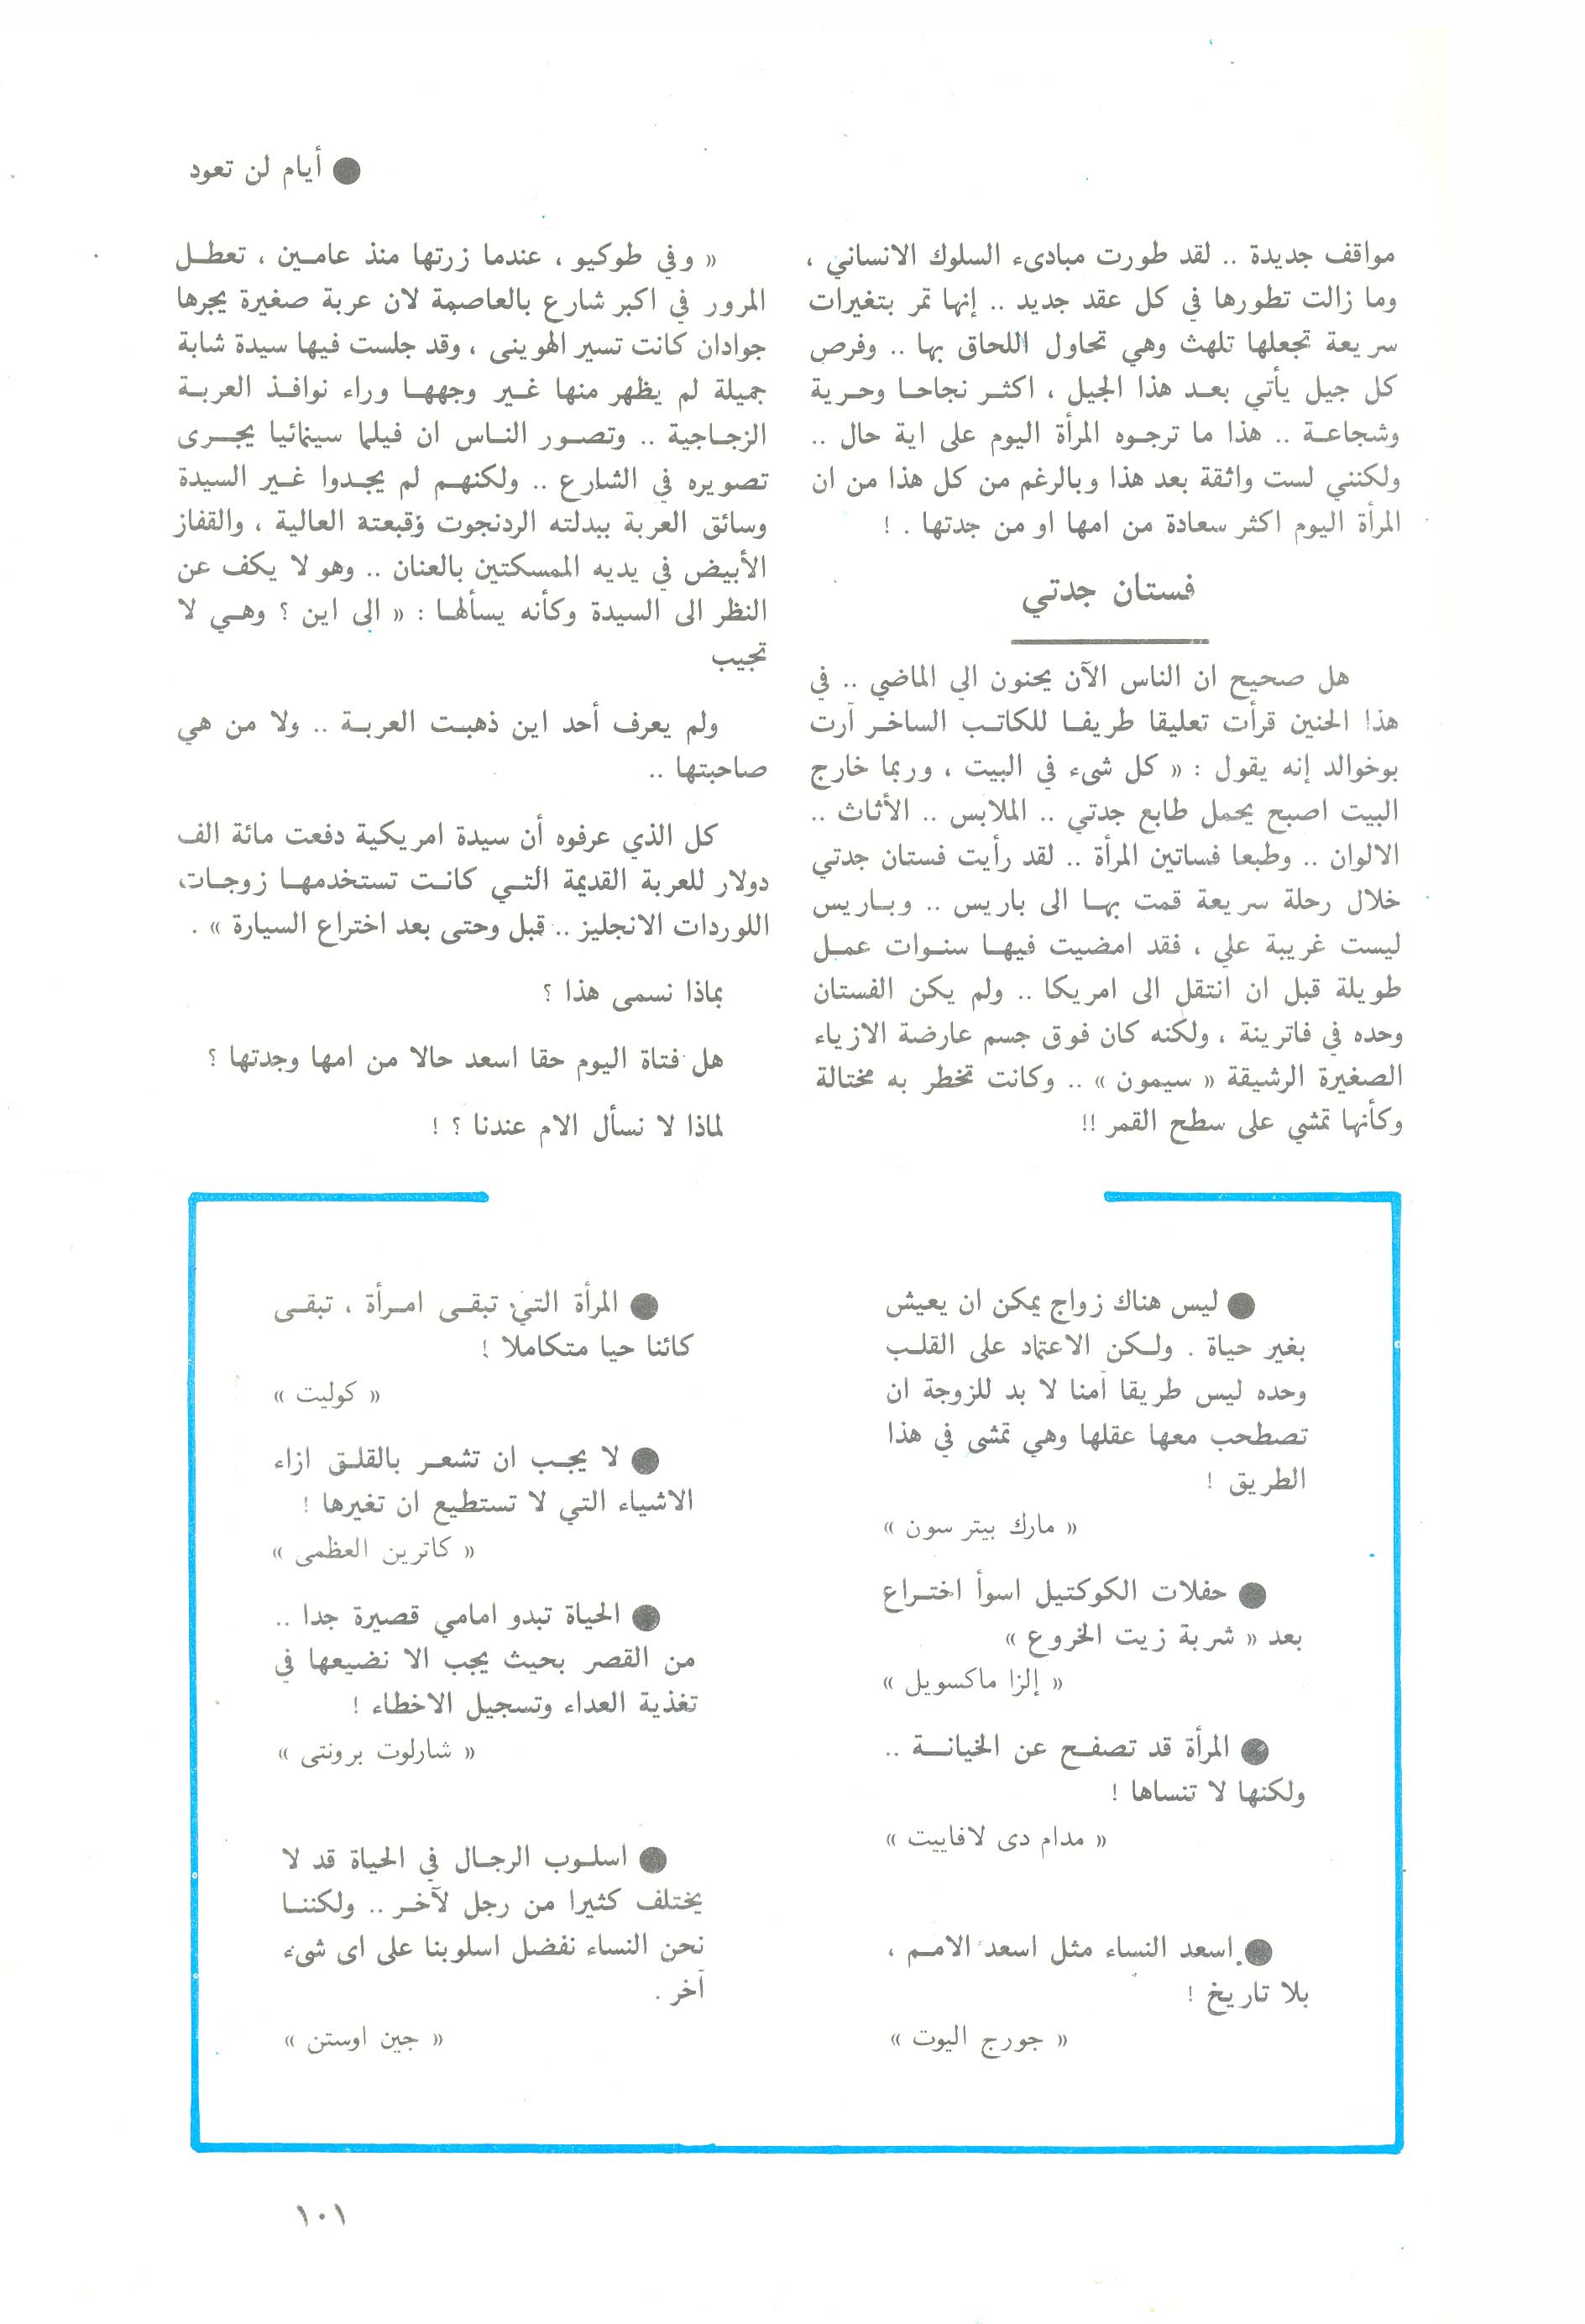 ● أيام لن تعود
مواقف جديدة .. لقد طورت مبادىء السلوك الانساني ،
وما زالت تطورها في كل عقد جديد .. إنها تمر بتغيرات
سريعة تجعلها تلهث وهي تحاول اللحاق بها .. وفرص
كل جيل يأتي بعد هذا الجيل ، اكثر نجاحا وحرية
وشجاعة .. هذا ما ترجوه المرأة اليوم على اية حال ..
ولكنني لست واثقة بعد هذا وبالرغم من كل هذا من ان
المرأة اليوم اكثر سعادة من امها او من جدتها . !
فستان جدتي
هل صحيح ان الناس الآن يحنون الي الماضي .. في
هذا الحنين قرأت تعليقا طريفا للكاتب الساخر آرت
بوخوالد إنه يقول : « كل شىء في البيت ، وربما خارج
البيت اصبح يحمل طابع جدتي .. الملابس .. الأثاث ..
الالوان .. وطبعا فساتين المرأة .. لقد رأيت فستان جدتي
خلال رحلة سريعة قمت بها الى باريس .. وباريس
ليست غريبة علي ، فقد امضيت فيها سنوات عمل
طويلة قبل ان انتقل الى امريكا .. ولم يكن الفستان
وحده في فاترينة ، ولكنه كان فوق جسم عارضة الازياء
الصغيرة الرشيقة « سيمون » .. وكانت تخطر به مختالة
وكأنها تمشي على سطح القمر !!
« وفي طوكيو ، عندما زرتها منذ عامين ، تعطل
المرور في اكبر شارع بالعاصمة لان عربة صغيرة يجرها
جوادان كانت تسير الهوينى ، وقد جلست فيها سيدة شابة
جميلة لم يظهر منها غير وجهها وراء نوافذ العربة
الزجاجية .. وتصور الناس ان فيلما سينمائيا يجرى
تصويره في الشارع .. ولكنهم لم يجدوا غير السيدة
وسائق العربة ببدلته الردنجوت وقبعته العالية ، والقفاز
الأبيض في يديه الممسكتين بالعنان .. وهو لا يكف عن
النظر الى السيدة وكأنه يسألها : « الى اين ؟ وهي لا
تجيب
ولم يعرف أحد اين ذهبت العربة .. ولا من هي
صاحبتها ..
كل الذي عرفوه أن سيدة امريكية دفعت مائة الف
دولار للعربة القديمة التي كانت تستخدمها زوجات
اللوردات الانجليز .. قبل وحتى بعد اختراع السيارة » .
بماذا نسمى هذا ؟
هل فتاة اليوم حقا اسعد حالا من امها وجدتها ؟
لماذا لا نسأل الام عندنا ؟ !
● ليس هناك زواج يمكن ان يعيش
بغير حياة . ولكن الاعتماد على القلب
وحده ليس طريقا آمنا لا بد للزوجة ان
تصطحب معها عقلها وهي تمشى في هذا
الطريق !
« مارك بيتر سون »
● حفلات الكوكتيل اسوأ اختراع
بعد « شربة زيت الخروع »
« إلزا ماكسويل »
● المرأة قد تصفح عن الخيانة ..
ولكنها لا تنساها !
« مدام دى لافاييت »
● اسعد النساء مثل اسعد الامم ،
بلا تاريخ !
« جورج اليوت »
● المرأة التي تبقى امرأة ، تبقى
كائنا حيا متكاملا !
« كوليت »
● لا يجب ان تشعر بالقلق ازاء
الاشياء التي لا تستطيع ان تغيرها !
« كاترين العظمى »
● الحياة تبدو امامي قصيرة جدا ..
من القصر بحيث يجب الا نضيعها في
تغذية العداء وتسجيل الاخطاء !
« شارلوت برونتى »
● اسلوب الرجال في الحياة قد لا
يختلف كثيرا من رجل لآخر .. ولكننا
نحن النساء نفضل اسلوبنا على اى شىء
آخر .
« جين اوستن »
١٠١